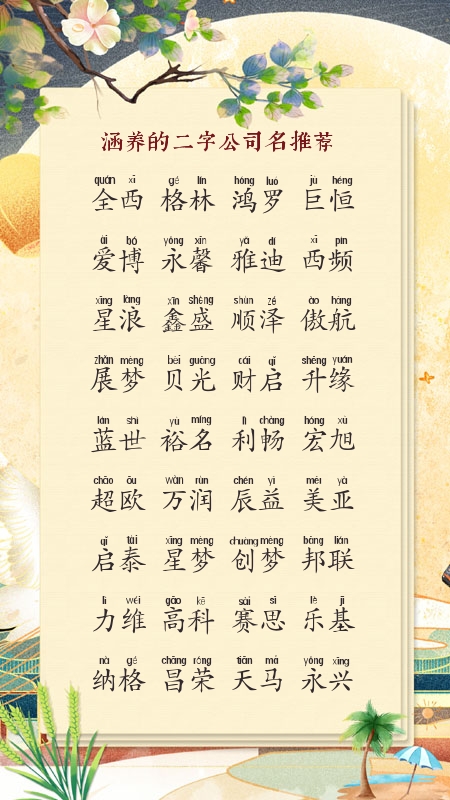 涵养的二字公司名推荐
quán xī gé lín hóng luó jù héng
全西 格林 鸿罗 巨恒
ài bó yǒng xīn yǎ dí xī pín
爱博 永馨 雅迪 西频
xīng làng xīn shèng shùn zé ào háng
星浪 鑫盛 顺泽 傲航
zhǎn mèng bèi guāng cái qǐ shēng yuán
展梦 贝光 财启 升缘
lán shì yù míng lì chàng hóng xù
蓝世 裕名 利畅 宏旭
chāo ōu wàn rùn chén yì měi yà
超欧 万润 辰益 美亚
qǐ tài xīng mèng chuàng mèng bāng lián
启泰 星梦 创梦 邦联
lì wéi gāo kē sài sī lè jī
力维 高科 赛思 乐基
nà gé chāng róng tiān mǎ yǒng xīng
纳格 昌荣 天马 永兴